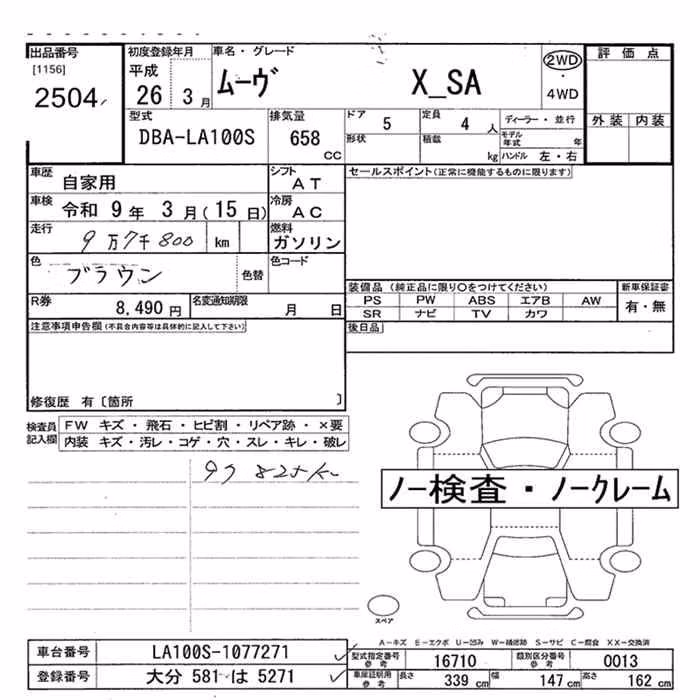 出品番号
[1156]
2504
初度登録年月
平成
26 3月
車名・グレード
ムーヴ X_SA
2WD
・
4WD
評価点
外装 内装
型式
DBA-LA100S
排気量
658
CC
ドア
5
定員
4 人
形状
積載
kg
ディーラー・並行
モデル年式 年
ハンドル 左・右
車歴
自家用
シフト
AT
車検
令和 9年 3月(15日)
冷房
AC
走行
9万7千800 km
燃料
ガソリン
色
ブラウン
色替
色コード
R券
8,490円
名変通知期限
月 日
セールスポイント(正常に機能するものに限ります)
装備品 (純正品に限り○をつけてください)
PS PW ABS エアB AW
SR ナビ TV カワ
新車保証書
有・無
後日品
注意事項申告欄(不具合内容等は具体的に記入して下さい)
修復歴 有〔箇所 〕
検査員記入欄
FW キズ・飛石・ヒビ割・リペア跡・×要
内装 キズ・汚レ・コゲ・穴・スレ・キレ・破レ
ノー検査・ノークレーム
スペア
A―キズ E―エクボ U―凹み W―補修跡 S―サビ C―腐食 XX―交換済
車台番号
LA100S-1077271
登録番号
大分 581 は 5271
型式指定番号
参考
16710
類別区分番号
参考
0013
車庫証明用
参考
長さ
339 cm
幅
147 cm
高さ
162 cm